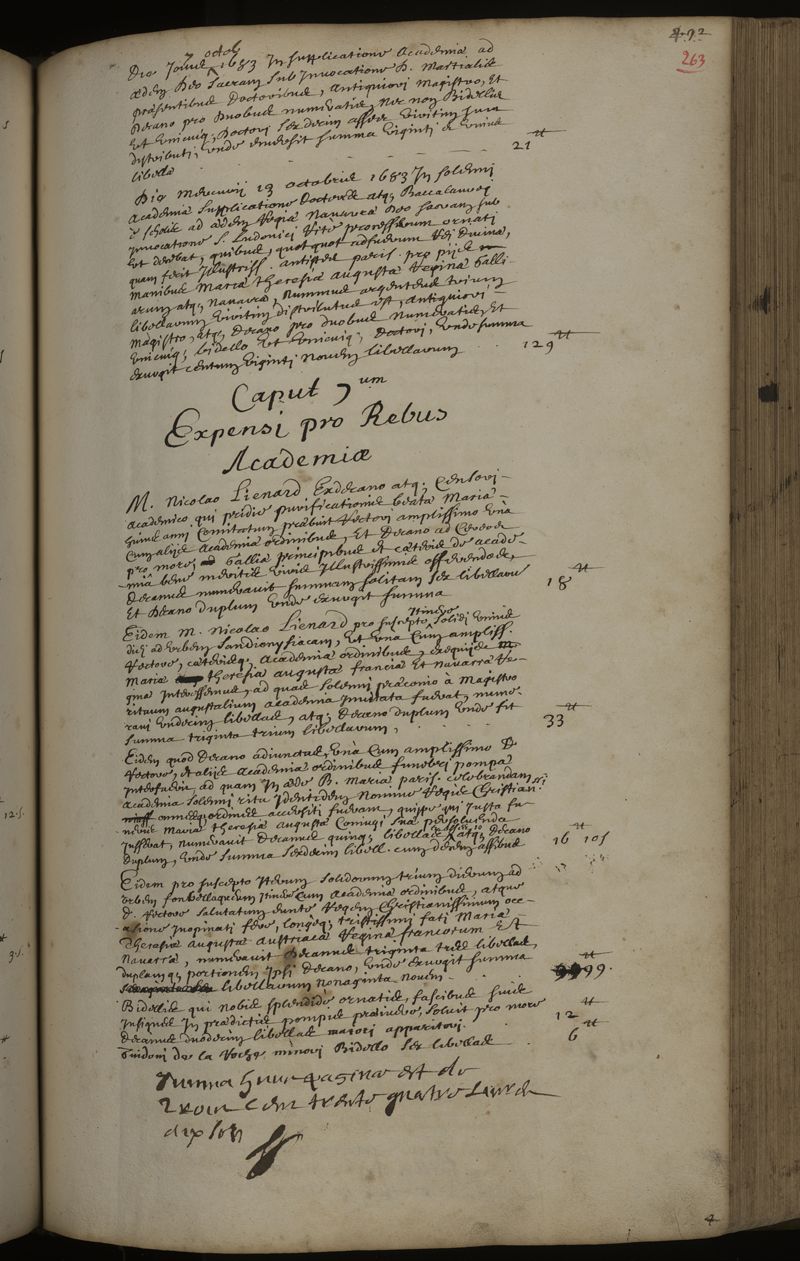 492
263
Die Jovis 7 octob 1683 In supplicatione Academiæ ad
ædem Deo sacram sub Invocatione B. Martialis
præsentibus Doctoribus, antiquiori Magistro, Et
Decano pro duobus numeratis, Nec non Bidellis
Et Unicuiq; Doctori sexdecim asses viritim sunt
distributi, unde emersit summa viginti et Unius
libellæ 21 ₶
Die Mercurii 13 octobris 1683 In solemni
Academiæ Supplicatione Doctores atq; Baccalaurei
è scholis ad ædem Regiæ Navarræ Deo sacram sub
Invocatione S. Ludovici Rite processerunt ornati
Ut decebat, quibus, quotquot adfuerunt Rei Divinæ,
quam fecit Illustriss. antistes paris. pro pijs
manibus Mariæ Theresiæ augustæ Reginæ Galli
arum atq; Navarræ, Nummus argenteus trium
libellarum viritim distributus est, antiquiori
Magistro, atq; Decano pro duobus numeratis, Et
Unicuiq; bidello Ut Unicuiq; Doctori, Unde summa
exurgit centum viginti novem libellarum 129 ₶
Caput 7um
Expensi pro Rebus
Academiæ
M. Nicolao Lienard Exdecano atq; Censori
Academico qui pridie purificationis beatæ Mariæ
hujus anni Comitatum præbuit Rectori amplissimo Unà
Cum alijs Academiæ ordinibus, Et Decano ad Cereos
pro more, Galliæ principibus et cæteris de acade-
miâ bene meritis viris Illustrissimis offerendos,
Decanus numeravit summam solitam sex libellarum
Et Decano duplum Unde exurgit summa 18 ₶
Eidem M. Nicolao Lienard pro suscepto Itinere solidi Unius
diei ad Urbem Sandionysiacam, Ut Unà Cum ampliss.
Rectore, cæterisq; Academiæ ordinibus, exequijs
Mariæ Theresiæ augustæ Franciæ Et Navarræ Re-
ginæ Interessemus, ad quas solemni præconio à Magistro
rituum augustalium academia Invitata fuerat, nume-
ravi Undecim libellas, atq; Decano duplum Unde fit
summa triginta trium libellarum, 33 ₶
Eidem quod Decano adiunctus, Unà Cum amplissimo D.
Rectore, et alijs Academiæ ordinibus funebri pompæ
Interfuerit, ad quam In æde B. Mariæ paris. celebrandam
Academia solemni ritu Identidem Nomine Regis Christian.mi
omnesq; ordines accersiti fuerant, quippe qui Iusta fu-
nebria Mariæ Theresiæ augustæ Coniugi suæ persolvenda
Iusserat, numeravit Decanus quinq; libellas atq; Decano
duplum, Unde summa sexdecim libell. cum decem assibus 16 ₶ 10s
Eidem pro suscepto Iterum solidorum trium dierum ad
Urbem fonbellaqueum Itinere Cum Academiæ ordinibus, atque
D. Rectore salutatum eunte Regem Christianissimum occa-
sione Inopinati fere, longeq; tristissimi fati Mariæ
Theresiæ augustæ austriacæ Reginæ francorum Et
Navarræ, numeravit Decanus triginta tres libellas,
duplamq; portionem Ipsi Decano, Unde exurgit summa
libellarum nonaginta novem 99 ₶
Bidellis qui nobis splendidè ornatis, fascibus suis
Insignes In prædictis pompis præivere, solvit pro more
Decanus duodecim libellas maiori apparitori. 12 ₶
Guidoni de la Roche minori Bidello sex libellas 6 ₶
Summa huius paginæ est de
Trois Cens trente quatre Livres
dix sols